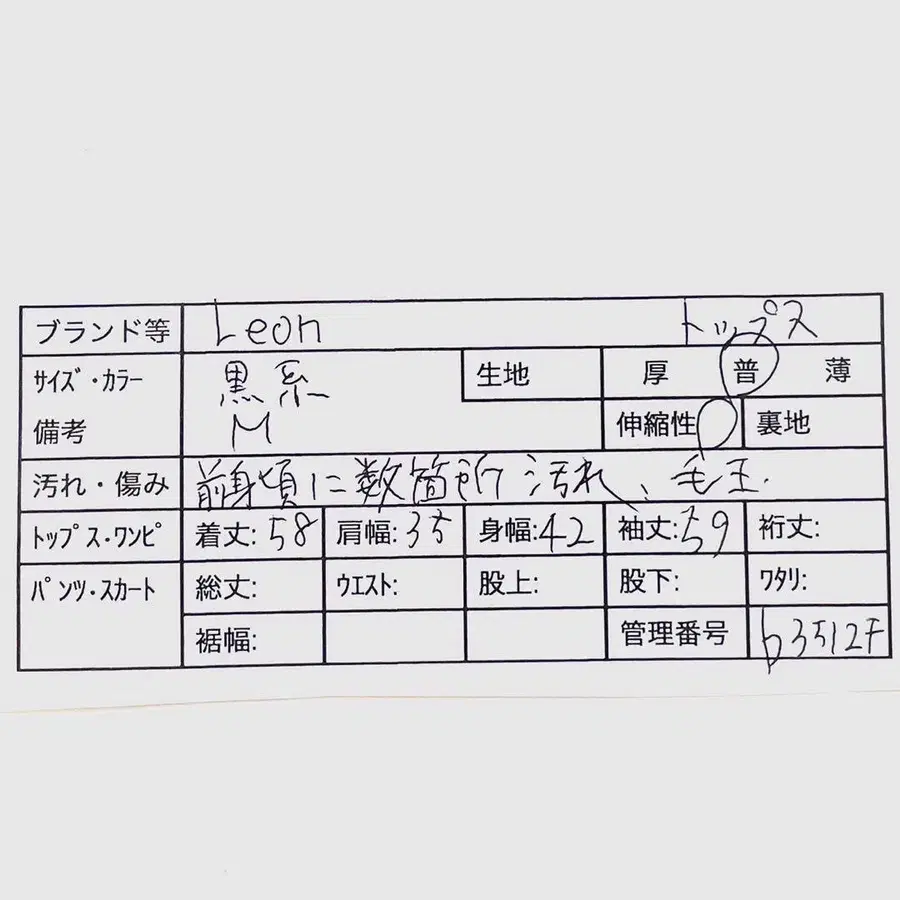 ブランド等 Leon トップス
サイズ・カラー 黒系 生地 厚 普 薄
備考 M 伸縮性 裏地
汚れ・傷み 前身頃に数箇所汚れ、毛玉.
トップス・ワンピ 着丈:58 肩幅:35 身幅:42 袖丈:59 裄丈:
パンツ・スカート 総丈: ウエスト: 股上: 股下: ワタリ:
裾幅: 管理番号 b3512F